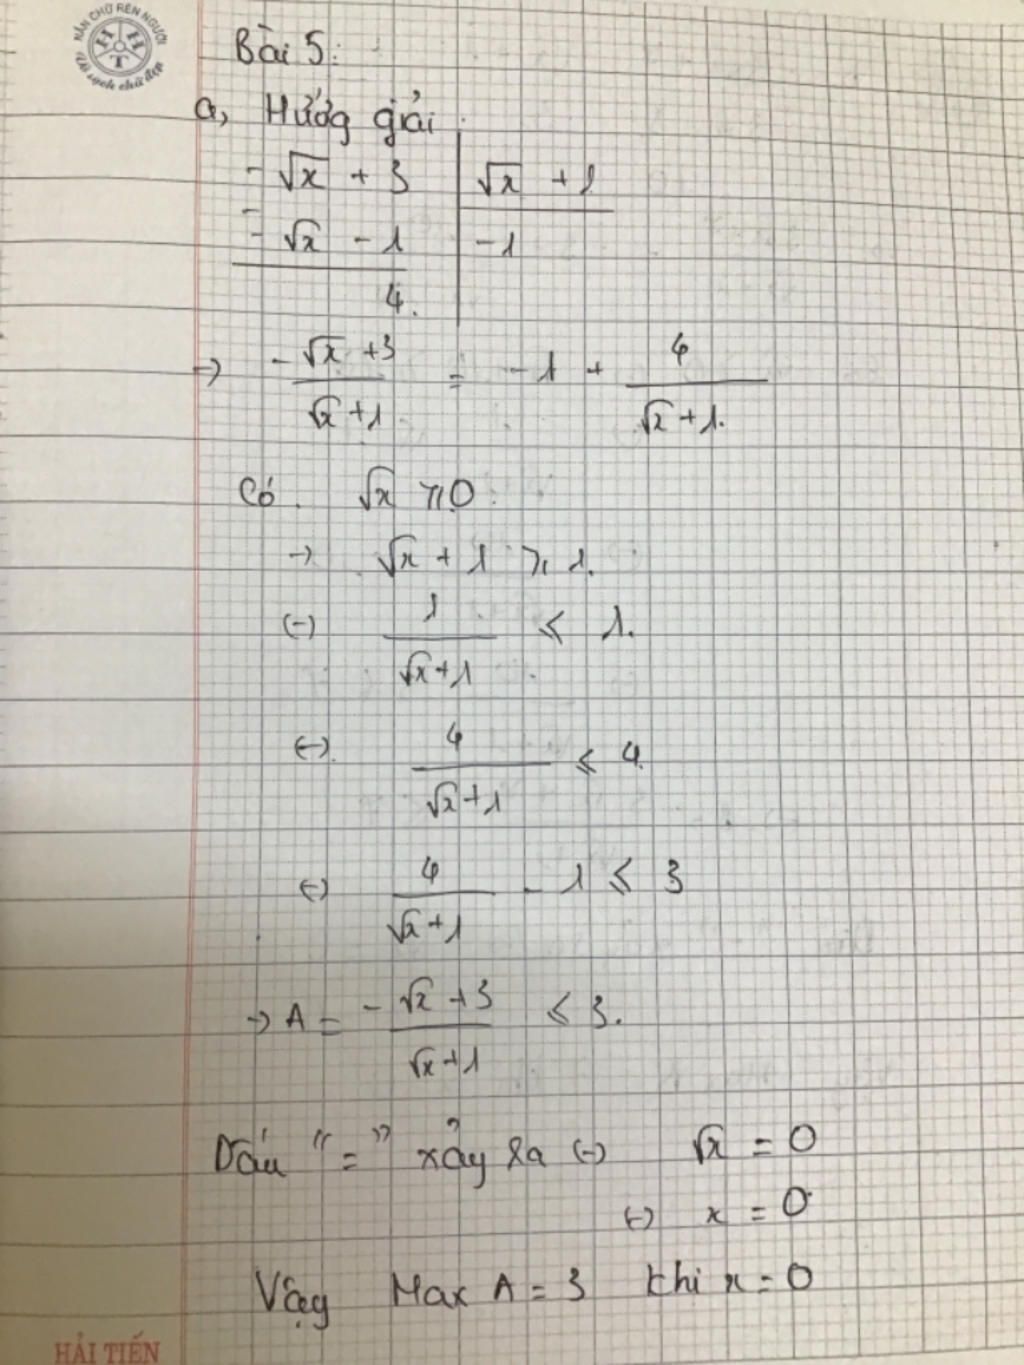 NÂN CHỮ RÈN NGƯỜI
H H T
Vở sạch chữ đẹp
Bài 5:
a, Hướng giải
- √x + 3 | √x + 1
- - √x - 1 | -1
4.
→ (-√x + 3)/(√x + 1) = -1 + 4/(√x + 1).
Có. √x ≥ 0
→ √x + 1 ≥ 1.
(-) 1/(√x + 1) ≤ 1.
(-). 4/(√x + 1) ≤ 4.
(-) 4/(√x + 1) - 1 ≤ 3
→ A = (-√x + 3)/(√x + 1) ≤ 3.
Dấu "=" xảy ra (-) √x = 0
(-) x = 0
Vậy Max A = 3 khi x = 0
HẢI TIẾN